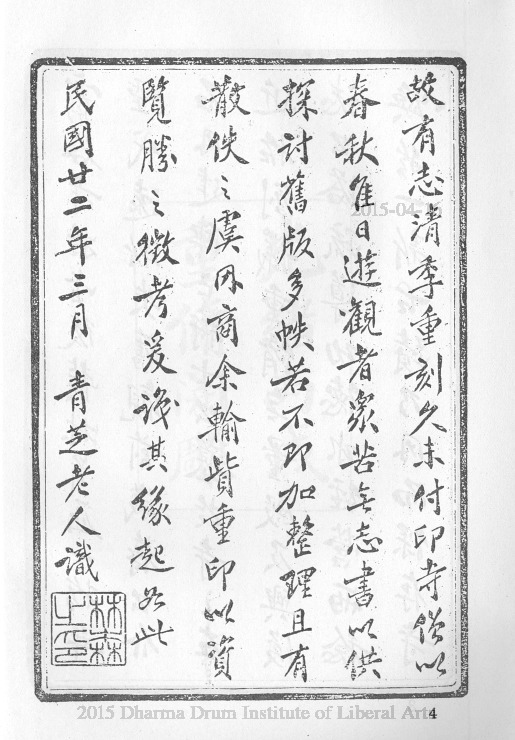 故有志清季重刻久未付印寺僧以
春秋佳日遊觀者衆苦無志書以供
探討舊版多帙若不即加整理且有
散佚之虞因商余輸貲重印以資
覽勝之徵考爰識其緣起如此
民國廿二年三月 青芝老人識
林森之印
2015-04-
2015 Dharma Drum Institute of Liberal Arts
4